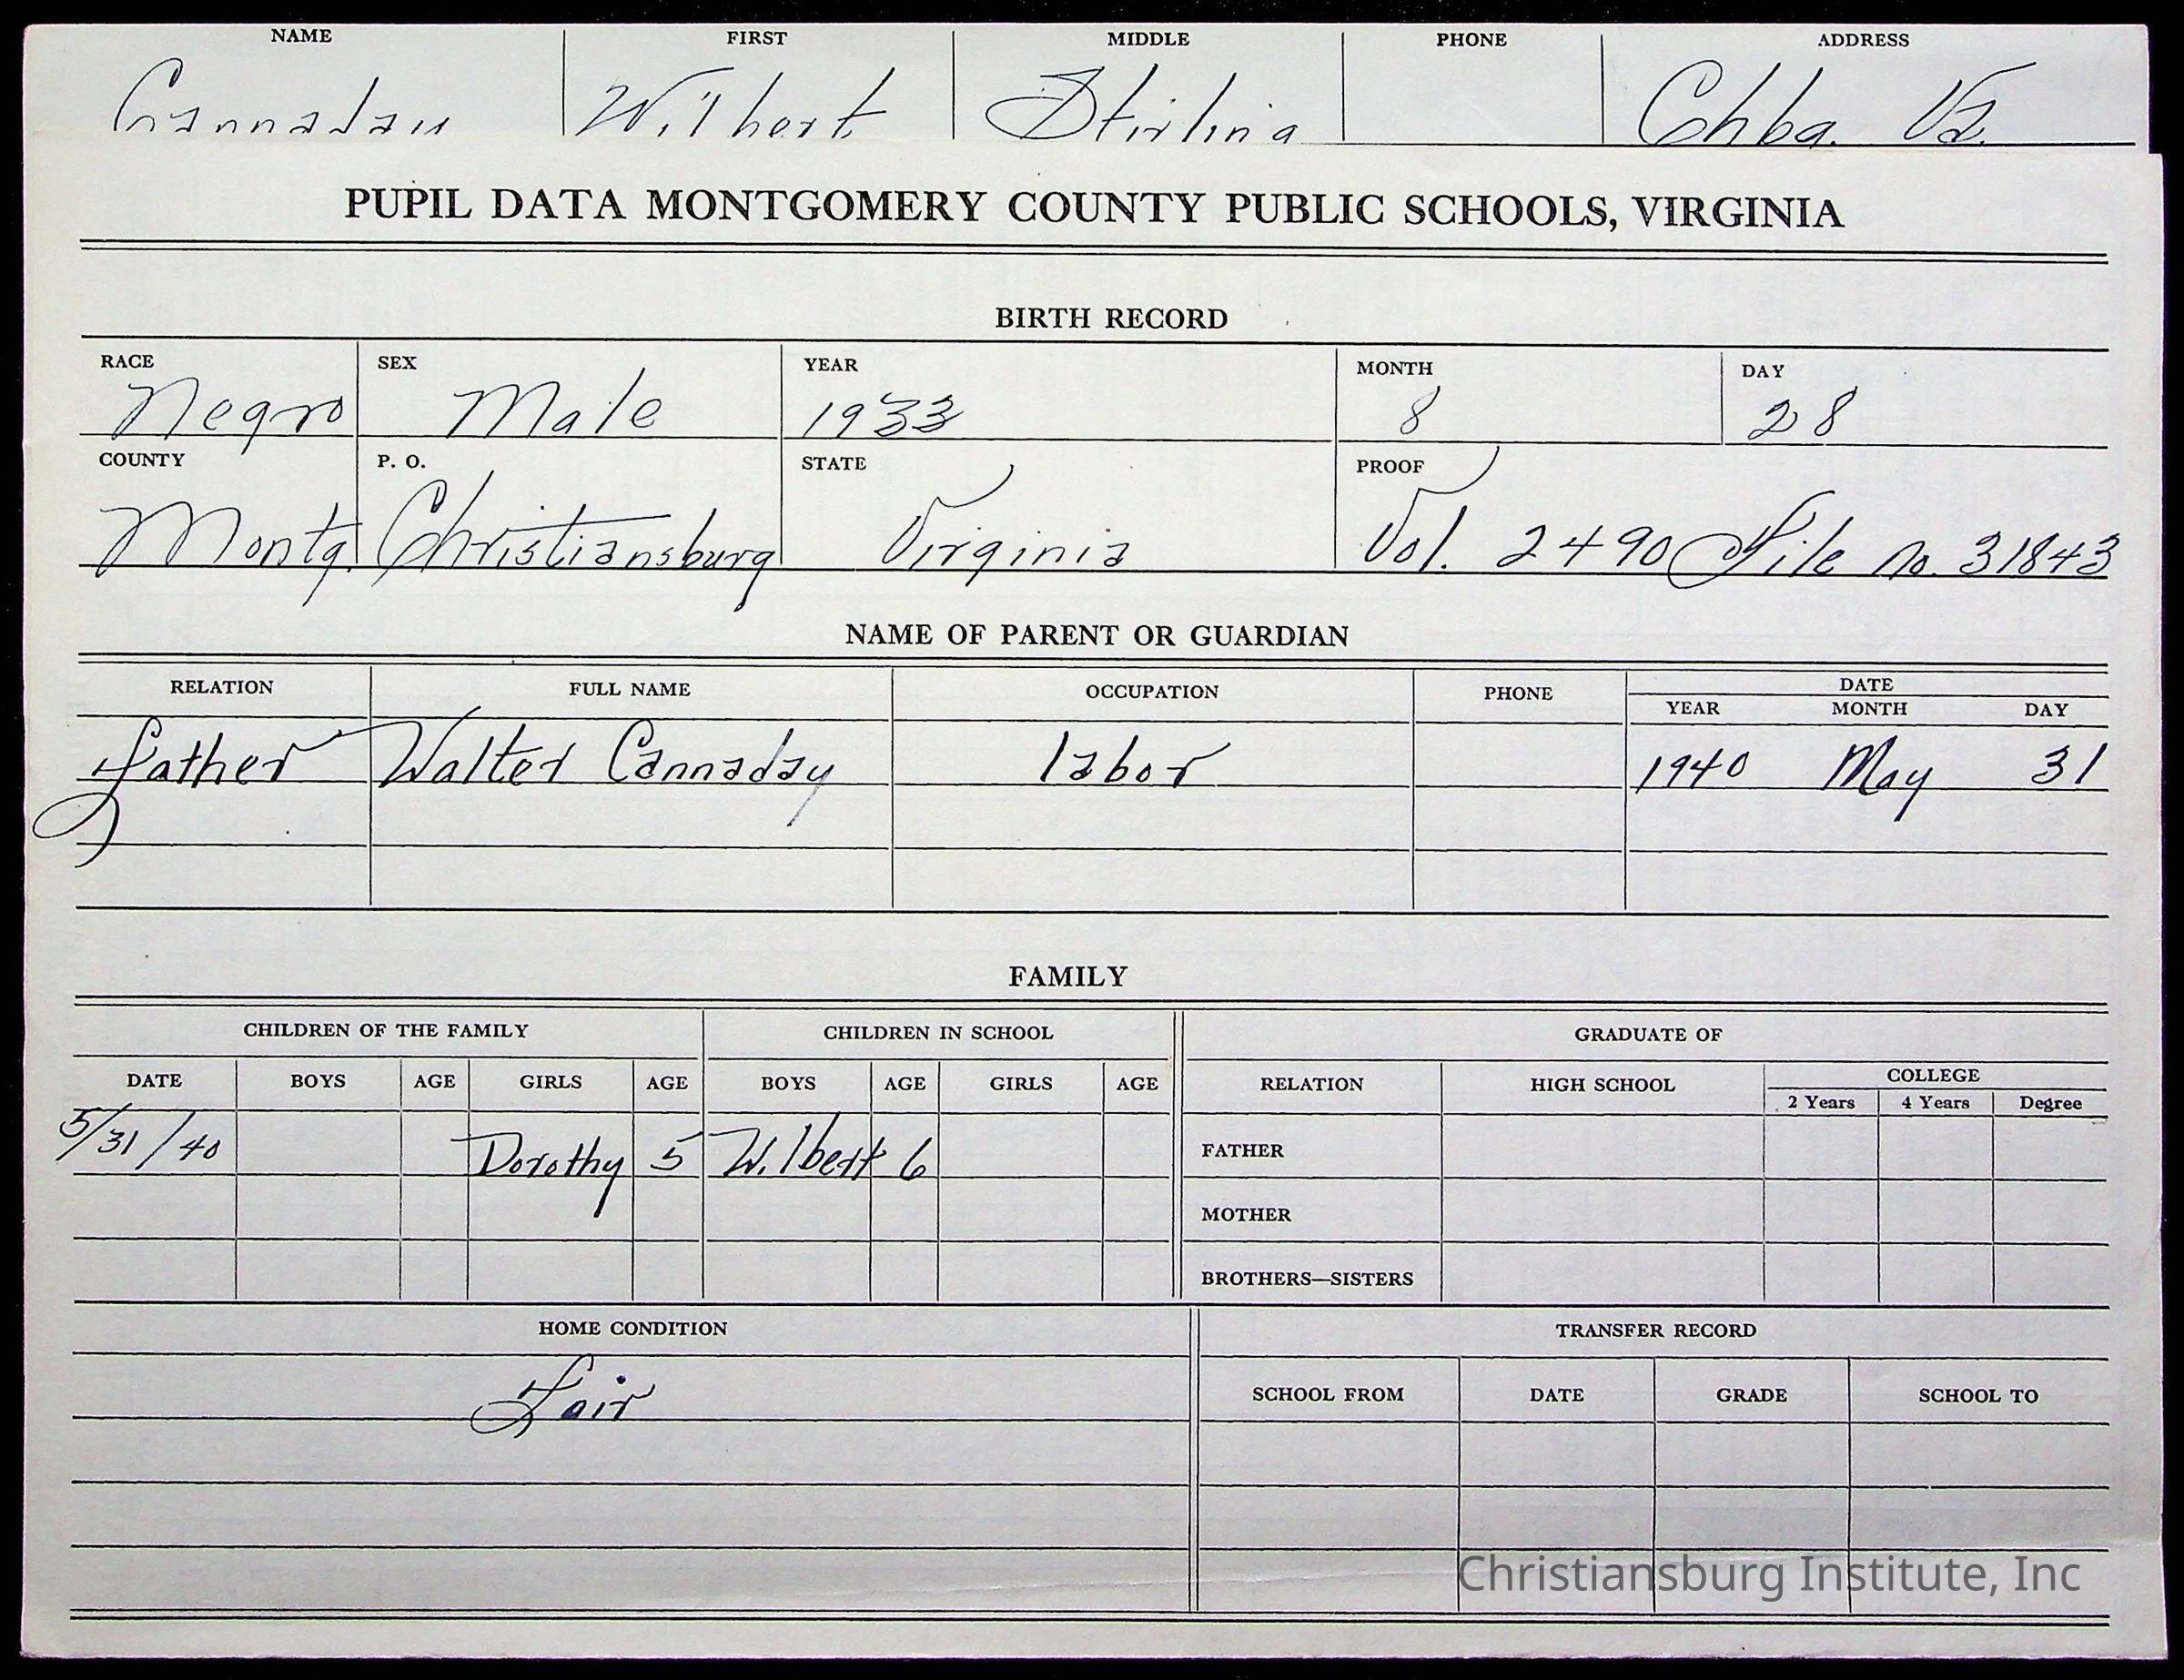 NAME FIRST MIDDLE PHONE ADDRESS
Cannaday Wilbert Stirling Chbg. Va.
PUPIL DATA MONTGOMERY COUNTY PUBLIC SCHOOLS, VIRGINIA
BIRTH RECORD
RACE SEX YEAR MONTH DAY
Negro Male 1933 8 28
COUNTY P. O. STATE PROOF
Montg. Christiansburg Virginia Vol. 2490 File No. 31843
NAME OF PARENT OR GUARDIAN
RELATION FULL NAME OCCUPATION PHONE DATE
YEAR MONTH DAY
father Walter Cannaday labor 1940 May 31
FAMILY
CHILDREN OF THE FAMILY CHILDREN IN SCHOOL GRADUATE OF
DATE BOYS AGE GIRLS AGE BOYS AGE GIRLS AGE RELATION HIGH SCHOOL COLLEGE
2 Years 4 Years Degree
5/31/40 Dorothy 5 Wilbert 6 FATHER
MOTHER
BROTHERS—SISTERS
HOME CONDITION TRANSFER RECORD
Fair
SCHOOL FROM DATE GRADE SCHOOL TO
Christiansburg Institute, Inc